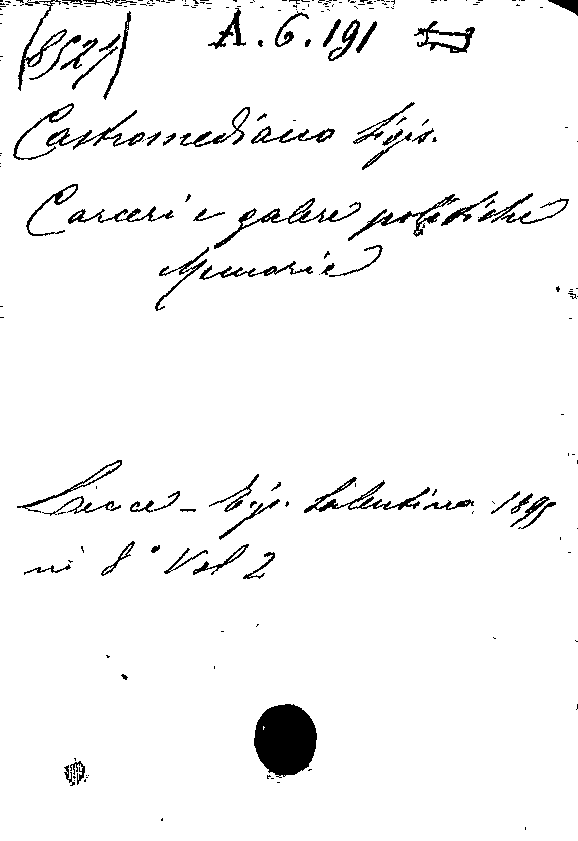 (8521) A. 6. 191
Castromediano Sigis.
Carceri e galere politiche
Memorie
Lecce - Tip. Salentina 1895
in 8° Vol 2